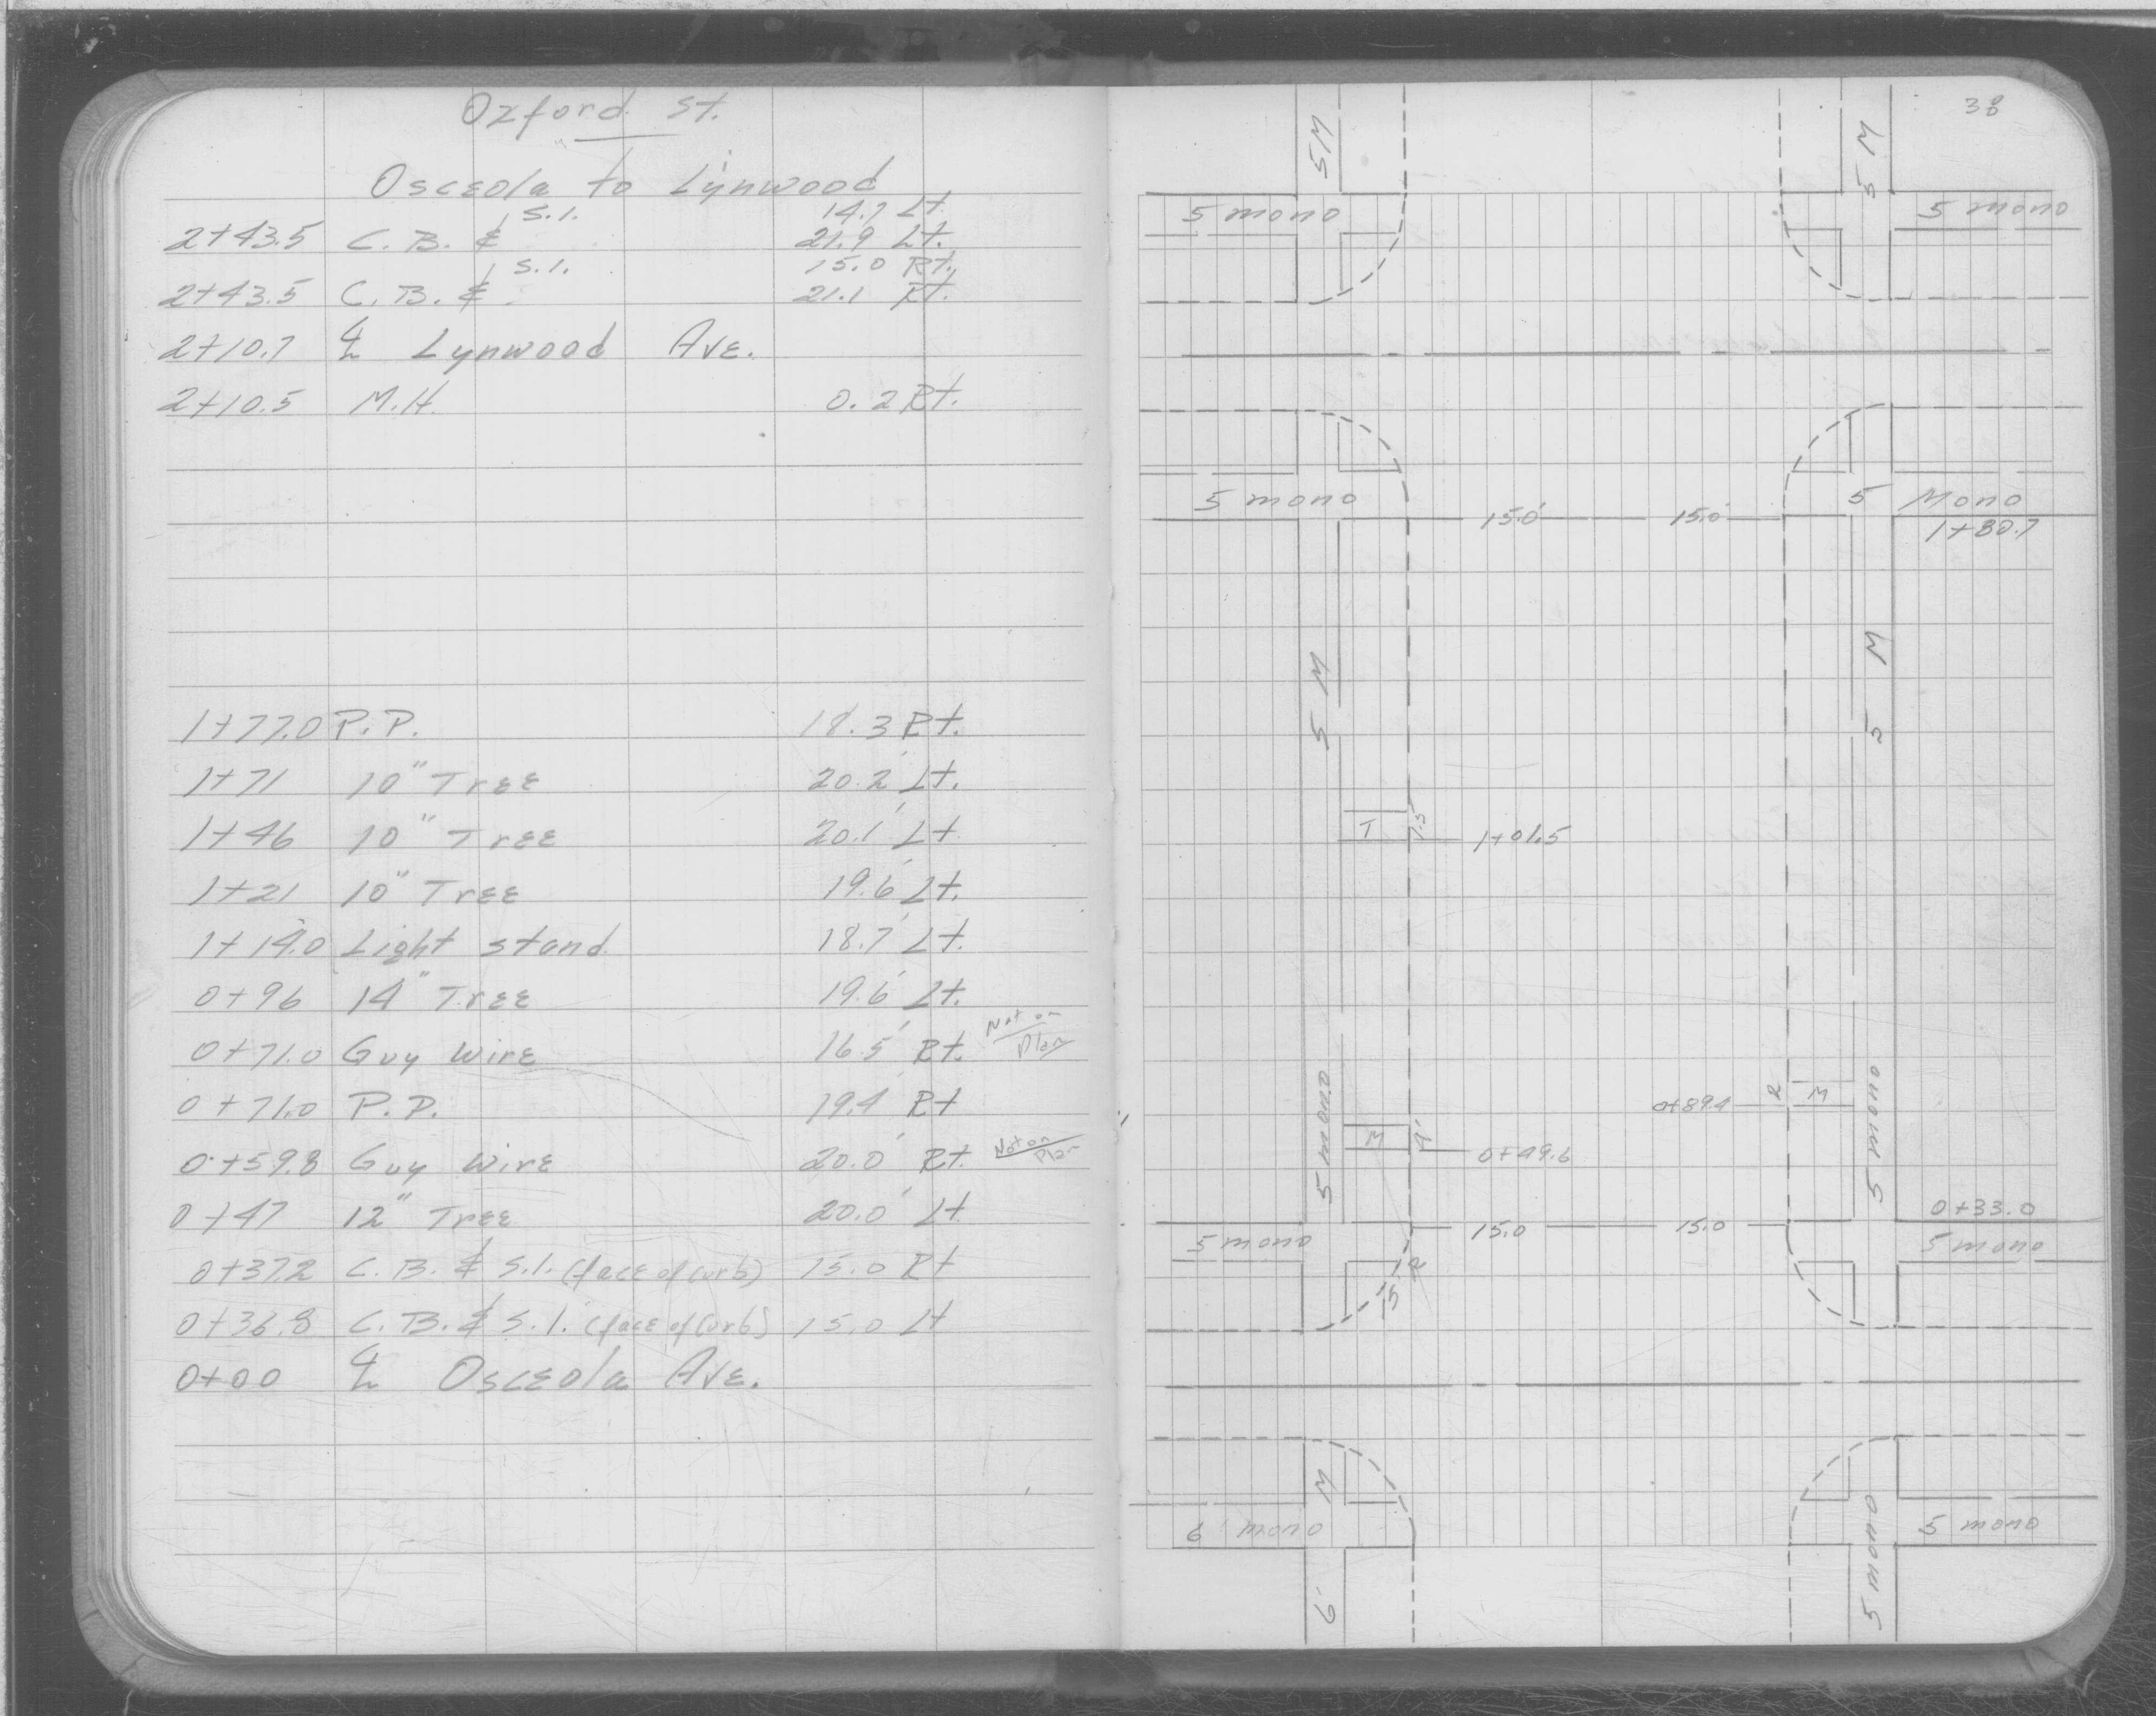 Oxford St.
Osceola to Lynwood
2+43.5 C.B. & S.I. 14.7 Lt. 21.9 Lt.
2+43.5 C.B. & S.I. 15.0 Rt. 21.1 Rt.
2+10.7 ℄ Lynwood Ave.
2+10.5 M.H. 0.2 Rt.
1+77.0 P.P. 18.3 Rt.
1+71 10" Tree 20.2' Lt.
1+46 10" Tree 20.1' Lt.
1+21 10" Tree 19.6' Lt.
1+14.0 Light stand 18.7' Lt.
0+96 14" Tree 19.6' Lt.
0+71.0 Guy Wire 16.5' Rt. Not on Plan
0+71.0 P.P. 19.4' Rt
0+59.8 Guy Wire 20.0' Rt. Not on Plan
0+47 12" Tree 20.0' Lt.
0+37.2 C.B. & S.I. (face of curb) 15.0 Rt
0+36.8 C.B. & S.I. (face of curb) 15.0 Lt
0+00 ℄ Osceola Ave.
38
5 M
5 M
5 mono
5 mono
5 mono
5 Mono
15.0'
15.0'
1+80.7
5 M
5 M
T
7.5
1+01.5
5 mono
5 mono
0+89.4
2
M
M
4'
0+49.6
0+33.0
15.0
15.0
5 mono
5 mono
15 R
M
6' mono
5 mono
6'
5 mono